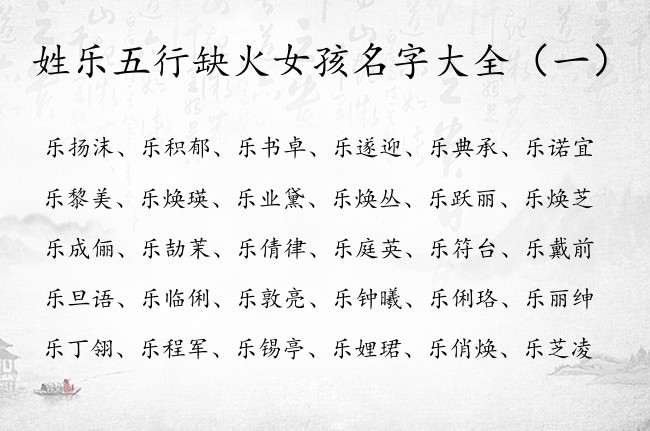 姓乐五行缺火女孩名字大全（一）
乐扬沫、乐积郁、乐书卓、乐遂迎、乐典承、乐诺宜
乐黎美、乐焕瑛、乐业黛、乐焕丛、乐跃丽、乐焕芝
乐成俪、乐劼茉、乐倩律、乐庭英、乐符台、乐戴前
乐旦语、乐临俐、乐敦亮、乐钟曦、乐俐珞、乐丽绅
乐丁翎、乐程军、乐锡亭、乐娌珺、乐俏焕、乐芝凌